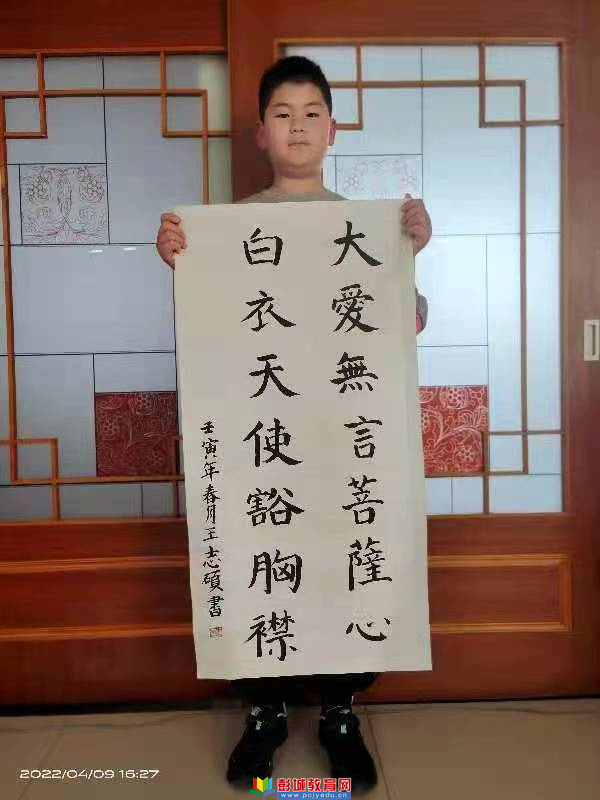 大愛無言菩薩心
白衣天使豁胸襟
壬寅年春月王志碩書
2022/04/09 16:27
彭城教育网
www.pcjyedu.cn